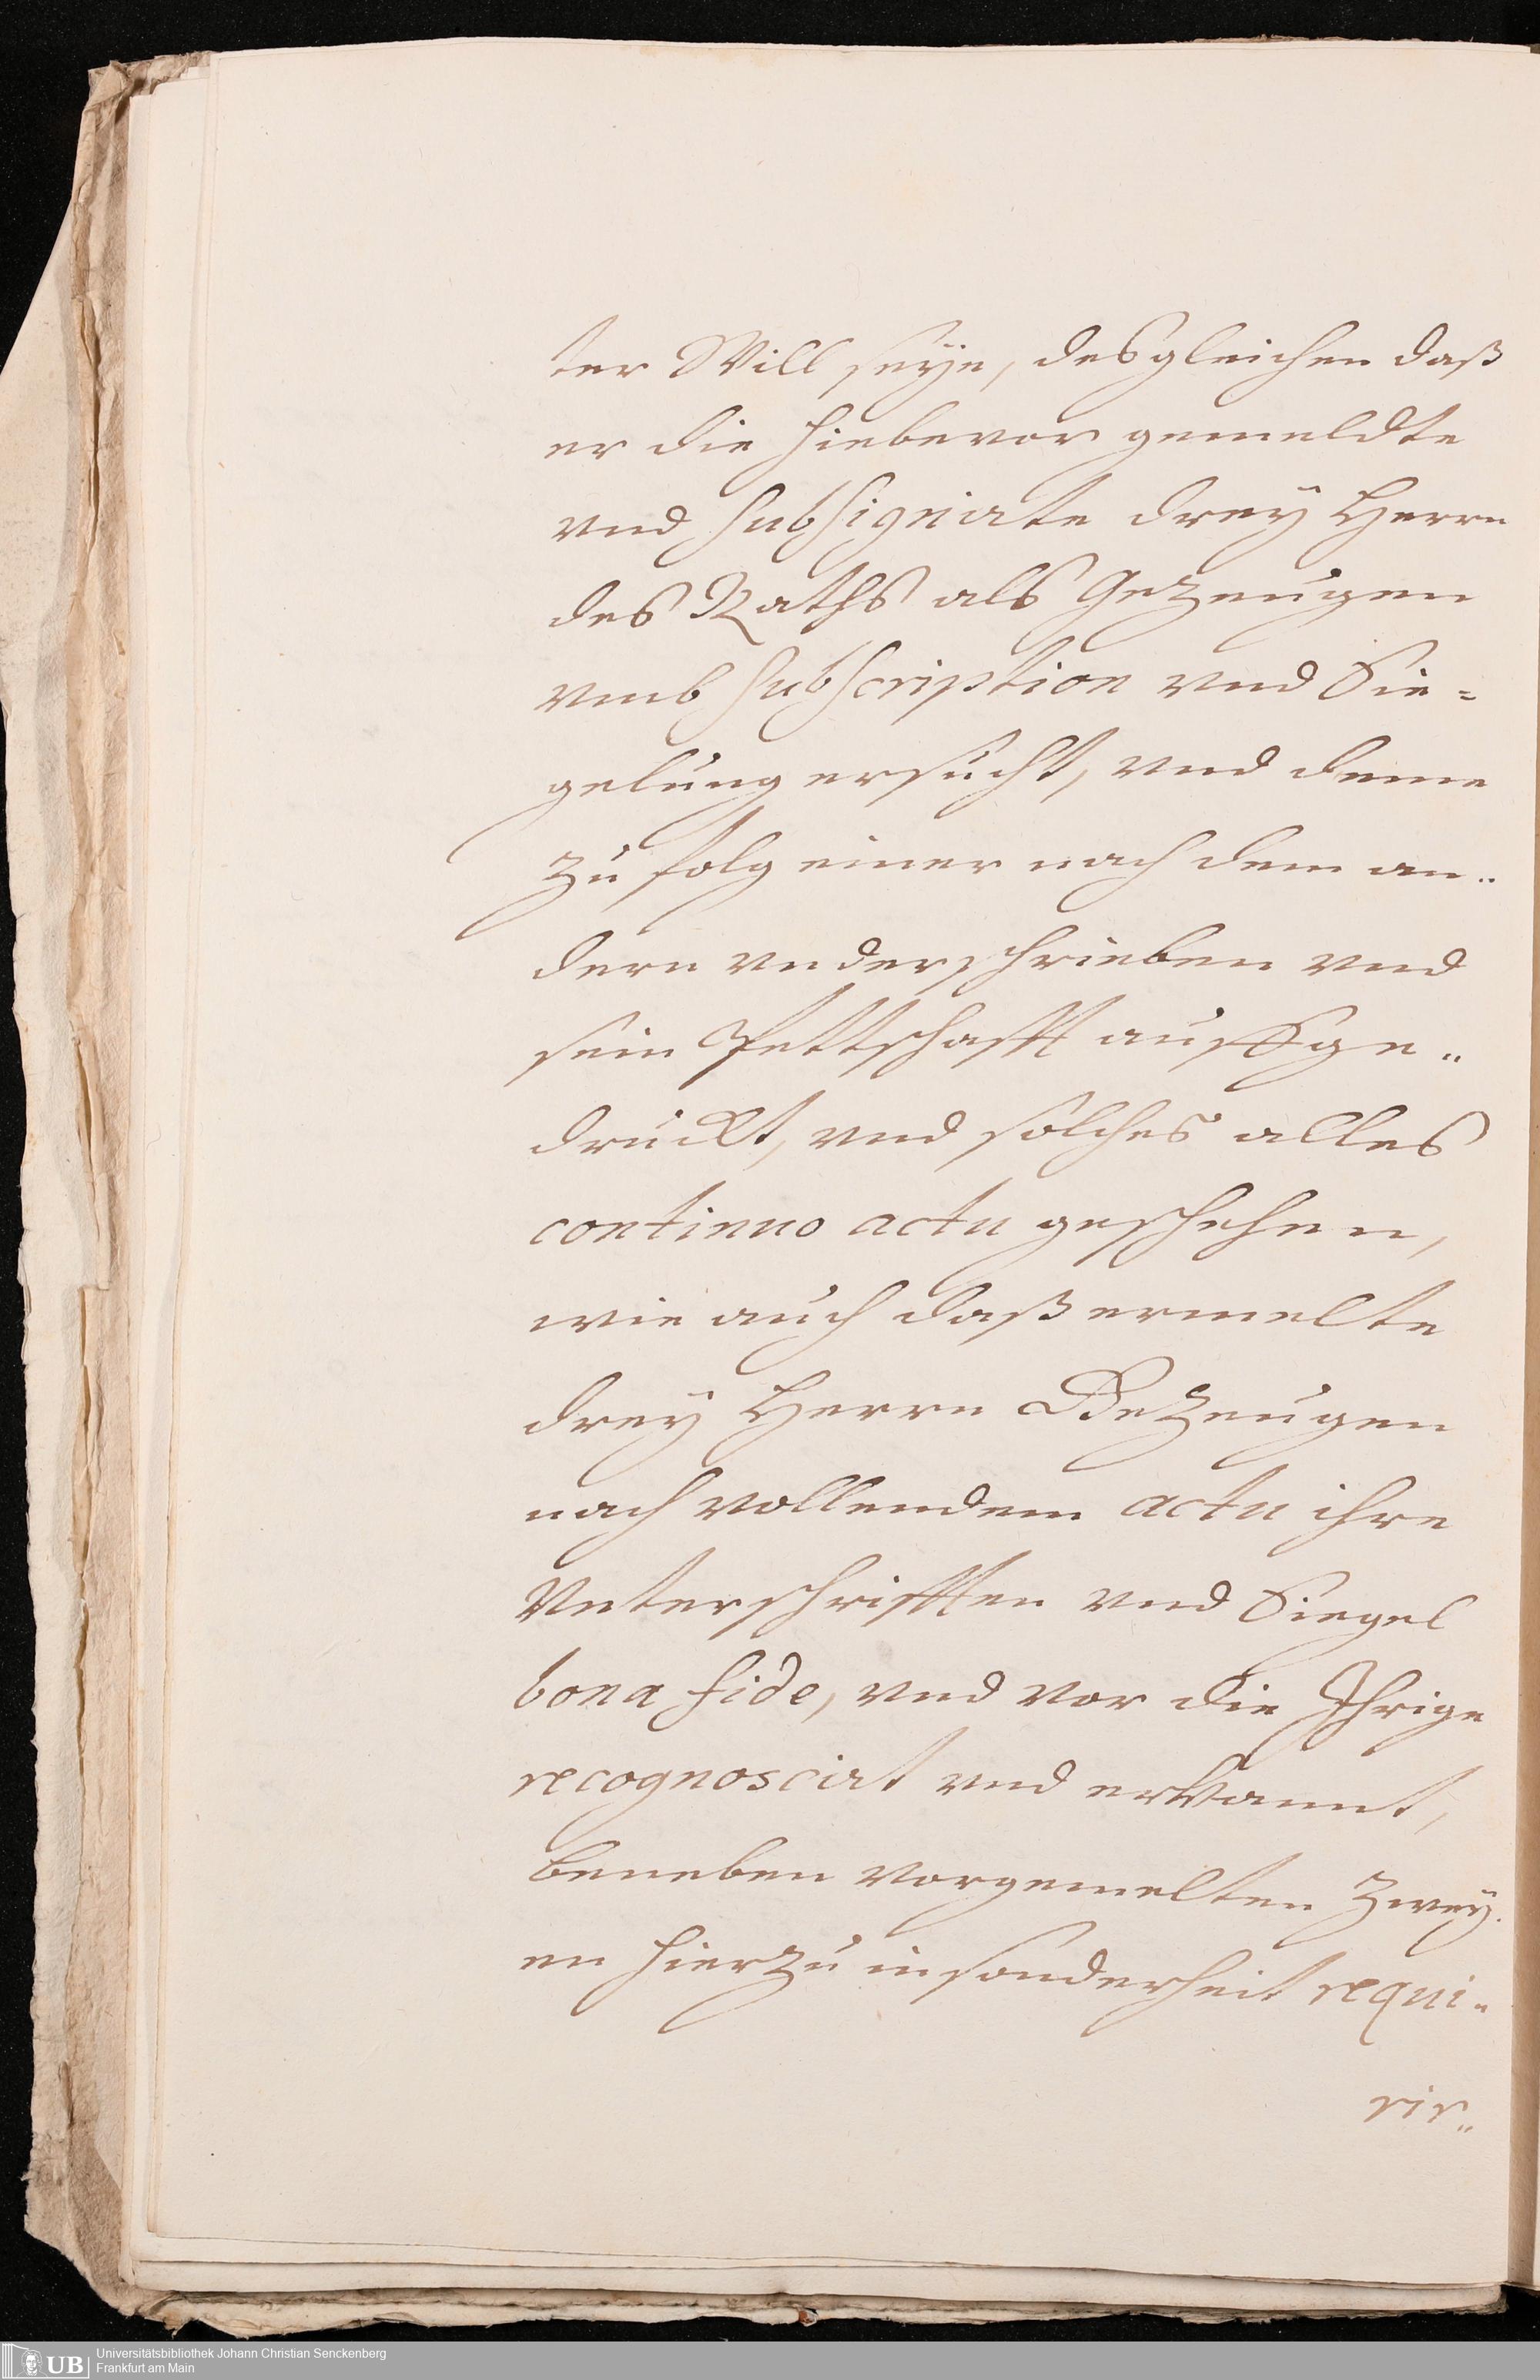 ter Will seye, desgleichen daß
er die hiebevor gemeldte
vnd subsignirte drey Herrn
des Raths als Gezeugen
vmb subscription vnd Sie=
gelung ersucht, vnd deme
zu folg einer nach dem an„
dern vnderschrieben vnd
sein Pettschafft auffge„
druckt, vnd solches alles
continuo actu geschehen,
wie auch daß ermelte
drey Herrn Gezeugen
nach vollendem actu ihre
Vnterschrifften vnd Siegel
bona fide, vnd vor die Ihrige
recognoscirt vnd erkannt,
beneben vorgemelten zwey„
en hierzu insonderheit requi„
rir„
UB Universitätsbibliothek Johann Christian Senckenberg
Frankfurt am Main